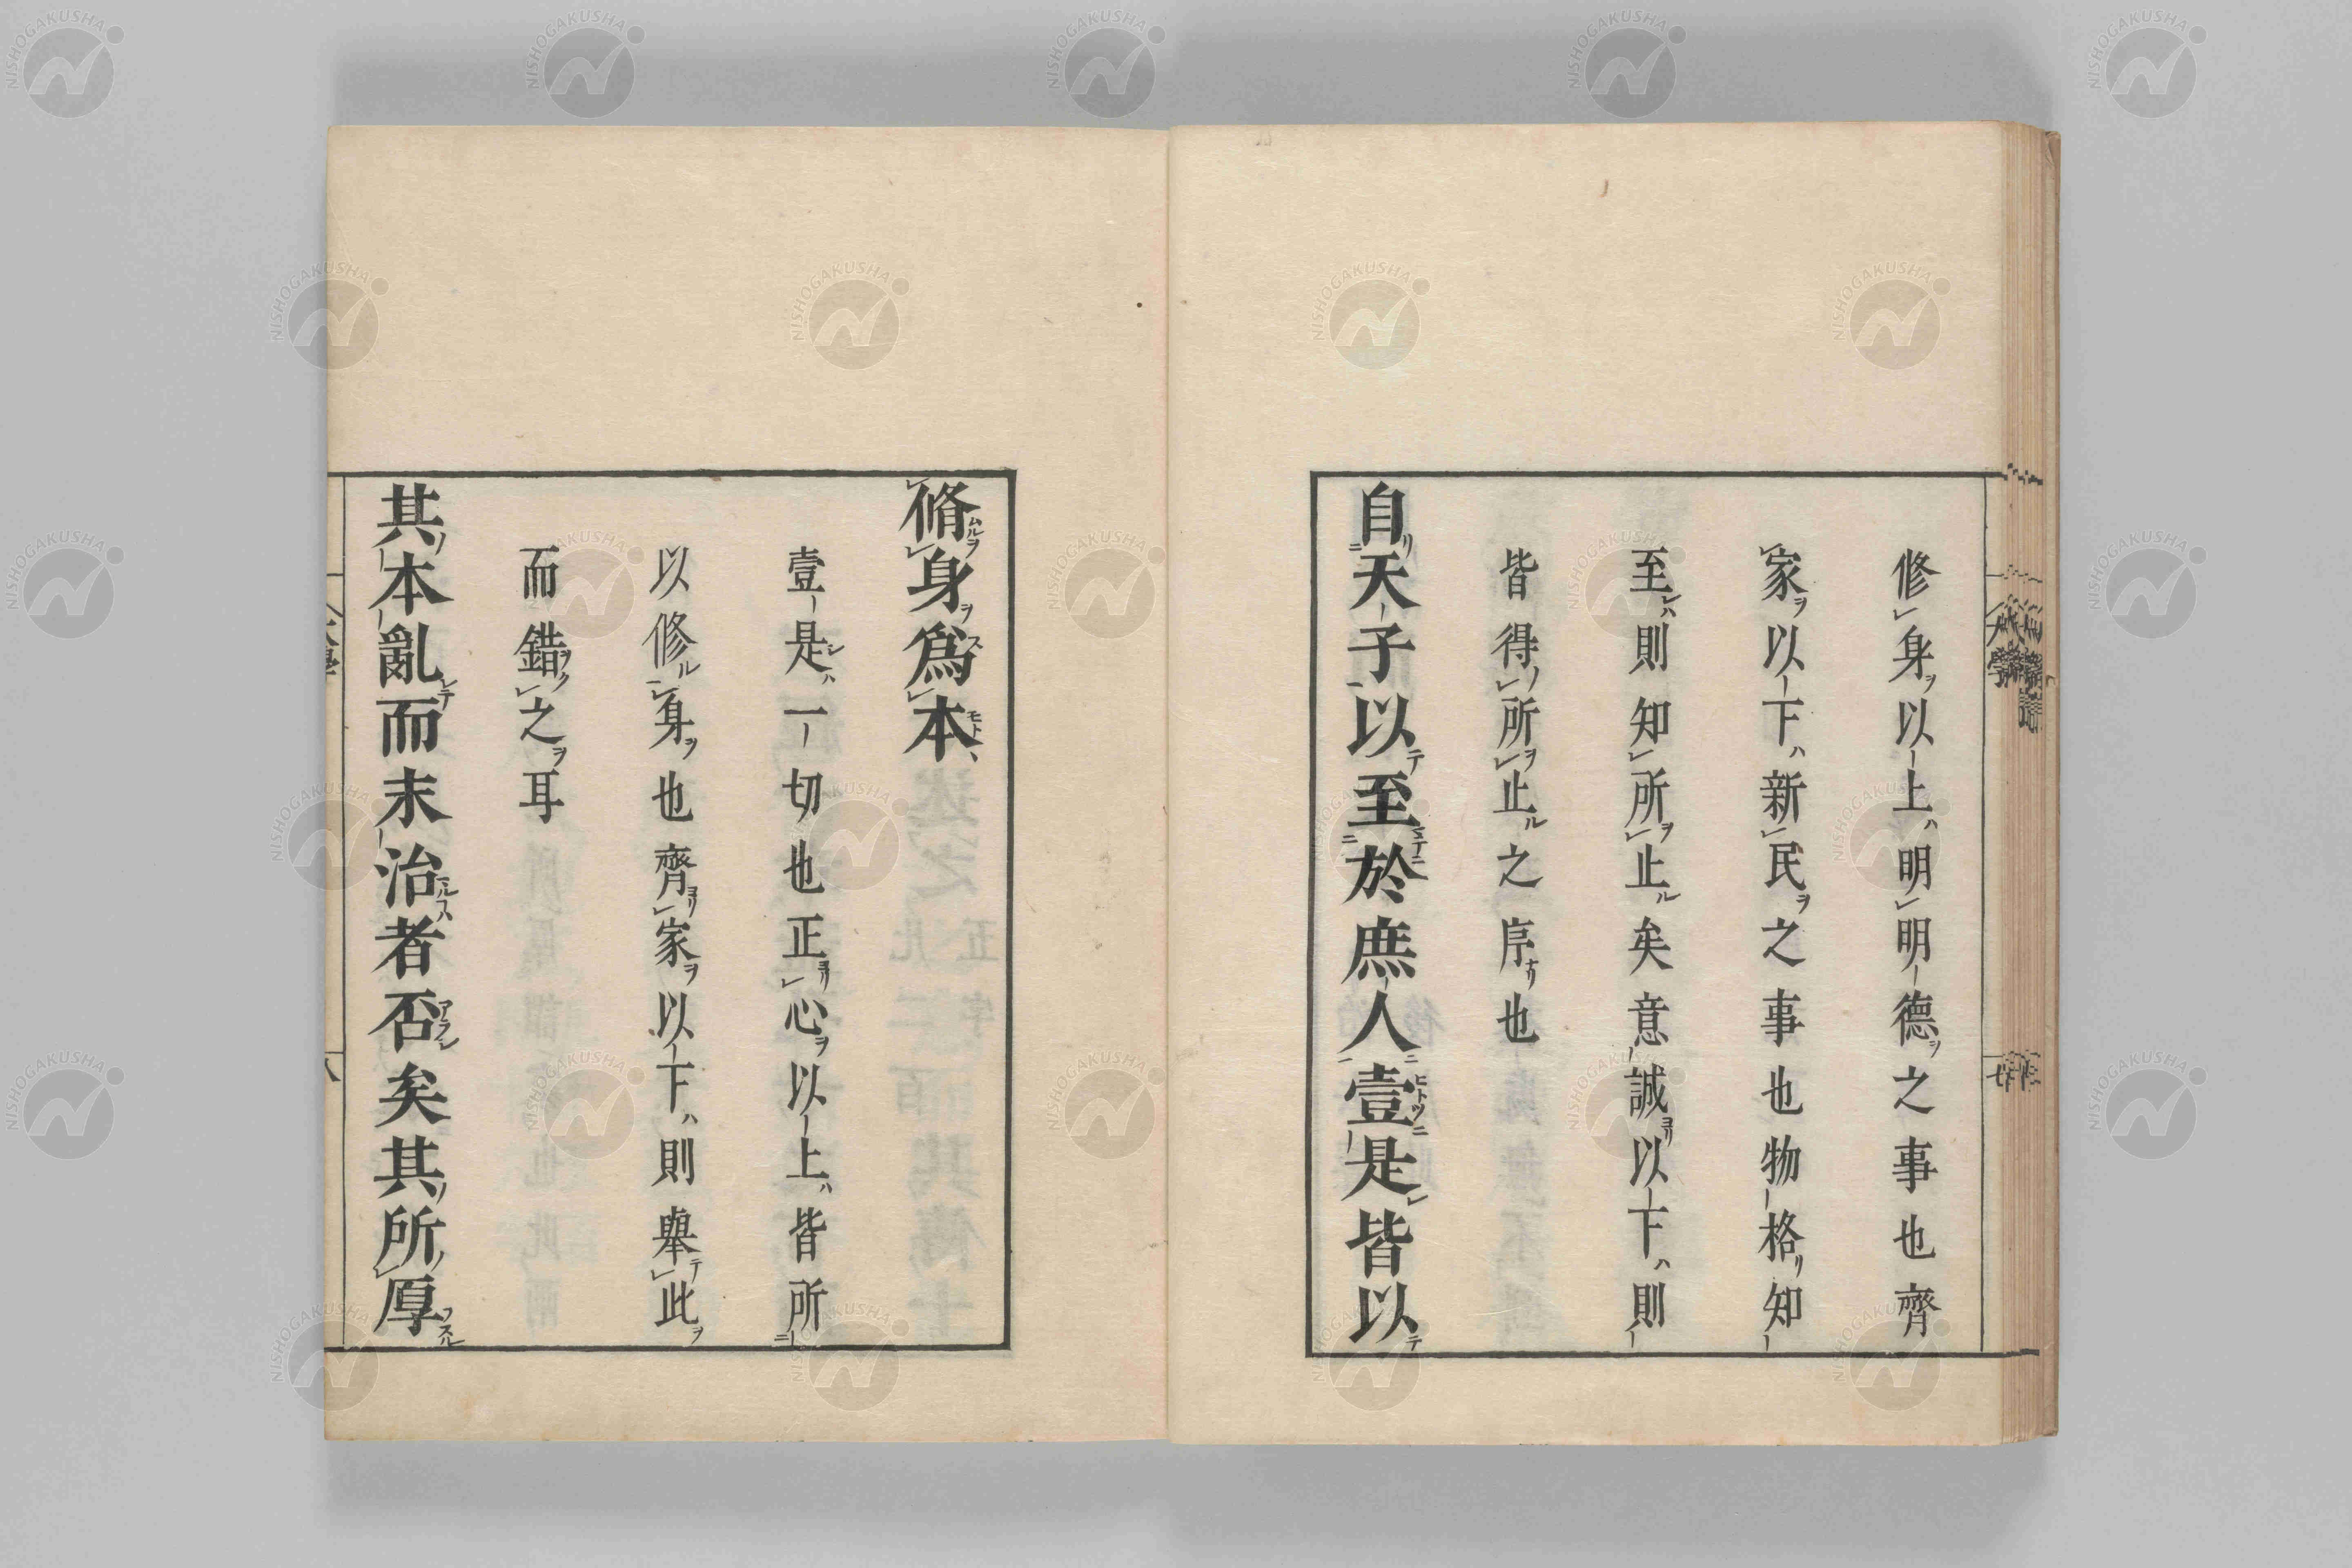 修身以上明明德之事也齊
家以下新民之事也物格知
至則知所止矣意誠以下則
皆得所止之序也
自天子以至於庶人壹是皆以
脩身爲本
壹是一切也正心以上皆所
以修身也齊家以下則舉此
而錯之耳
其本亂而末治者否矣其所厚
大學
七
八
NISHOGAKUSHA